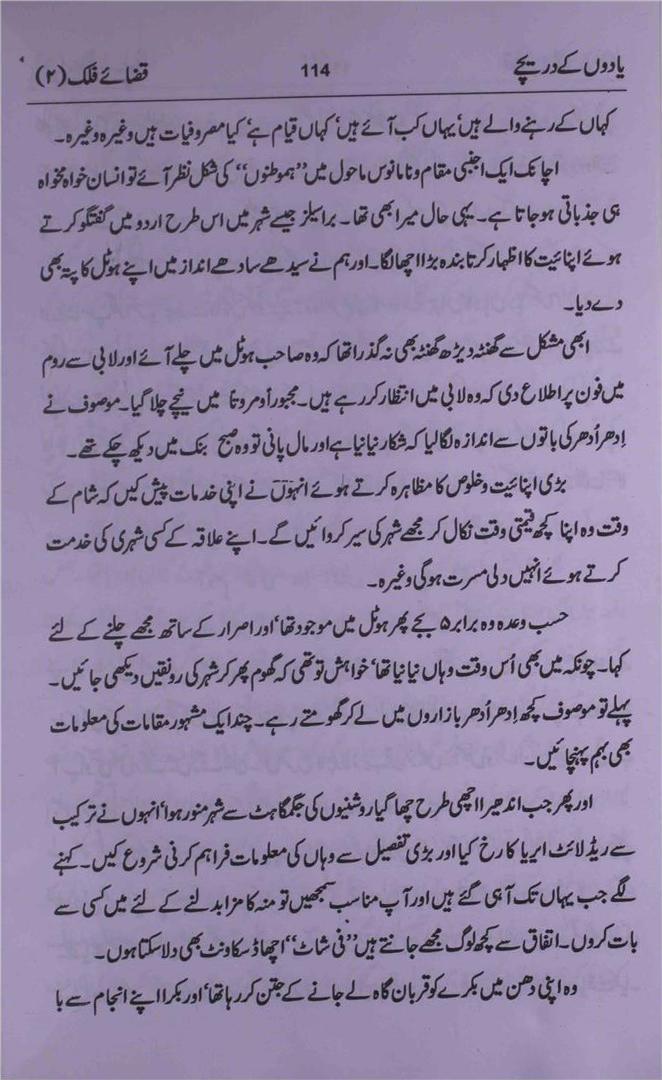 یادوں کے دریچے 114 قضائے فلک (۲)
کہاں کے رہنے والے ہیں‘ یہاں کب آئے ہیں‘ کہاں قیام ہے‘ کیا مصروفیات ہیں وغیرہ وغیرہ۔
اچانک ایک اجنبی مقام ونامانوس ماحول میں ’’ہموطنوں‘‘ کی شکل نظر آئے تو انسان خواہ مخواہ
ہی جذباتی ہوجاتا ہے۔ یہی حال میرا بھی تھا۔ برایلز جیسے شہر میں اس طرح اردو میں گفتگو کرتے
ہوئے اپنائیت کا اظہار کرتا بندہ بڑا اچھا لگا۔ اور ہم نے سیدھے سادھے انداز میں اپنے ہوٹل کا پتہ بھی
دے دیا۔
ابھی مشکل سے گھنٹہ ڈیڑھ گھنٹہ بھی نہ گذرا تھا کہ وہ صاحب ہوٹل میں چلے آئے اور لابی سے روم
میں فون پر اطلاع دی کہ وہ لابی میں انتظار کررہے ہیں۔ مجبوراً ومروتا میں نیچے چلا گیا۔ موصوف نے
اِدھر اُدھر کی باتوں سے اندازہ لگالیا کہ شکار نیا نیا ہے اور مال پانی تو وہ صبح بنک میں دیکھ چکے تھے۔
بڑی اپنائیت وخلوص کا مظاہرہ کرتے ہوئے انہوں نے اپنی خدمات پیش کیں کہ شام کے
وقت وہ اپنا کچھ قیمتی وقت نکال کر مجھے شہر کی سیر کروائیں گے۔ اپنے علاقہ کے کسی شہری کی خدمت
کرتے ہوئے انہیں دلی مسرت ہوگی وغیرہ۔
حسب وعدہ وہ برابر ۵ بجے پھر ہوٹل میں موجود تھا‘ اور اصرار کے ساتھ مجھے چلنے کے لئے
کہا۔ چونکہ میں بھی اُس وقت وہاں نیا نیا تھا‘ خواہش تو تھی کہ گھوم پھر کر شہر کی رونقیں دیکھی جائیں۔
پہلے تو موصوف کچھ اِدھر اُدھر بازاروں میں لے کر گھومتے رہے۔ چند ایک مشہور مقامات کی معلومات
بھی بہم پہنچائیں۔
اور پھر جب اندھیرا اچھی طرح چھا گیا روشنیوں کی جگمگاہٹ سے شہر منور ہوا‘ انہوں نے ترکیب
سے ریڈ لائٹ ایریا کا رخ کیا اور بڑی تفصیل سے وہاں کی معلومات فراہم کرنی شروع کیں۔ کہنے
لگے جب یہاں تک آ ہی گئے ہیں اور آپ مناسب سمجھیں تو منہ کا مزا بدلنے کے لئے میں کسی سے
بات کروں۔ اتفاق سے کچھ لوگ مجھے جانتے ہیں ’’فی شاٹ‘‘ اچھا ڈسکاونٹ بھی دلا سکتا ہوں۔
وہ اپنی دھن میں بکرے کو قربان گاہ لے جانے کے جتن کررہا تھا‘ اور بکرا اپنے انجام سے با